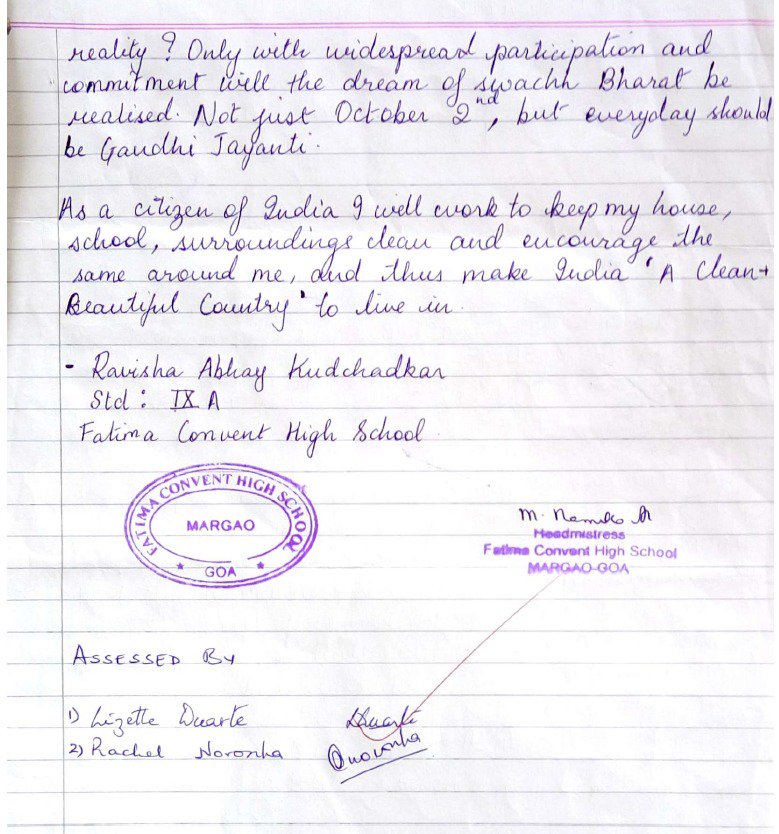 reality ? Only with widespread participation and
commitment will the dream of swachh Bharat be
realised. Not just October 2nd, but everyday should
be Gandhi Jayanti.
As a citizen of India I will work to keep my house,
school, surroundings clean and encourage the
same around me, and thus make India 'A Clean +
Beautiful Country' to live in.
- Ravisha Abhay Kudchadkar
Std : IX A
Fatima Convent High School
FATIMA CONVENT HIGH SCHOOL
MARGAO
* GOA *
M.
Headmistress
Fatima Convent High School
MARGAO-GOA
ASSESSED BY
1) Lizette Duarte Duarte
2) Rachel Noronha Noronha